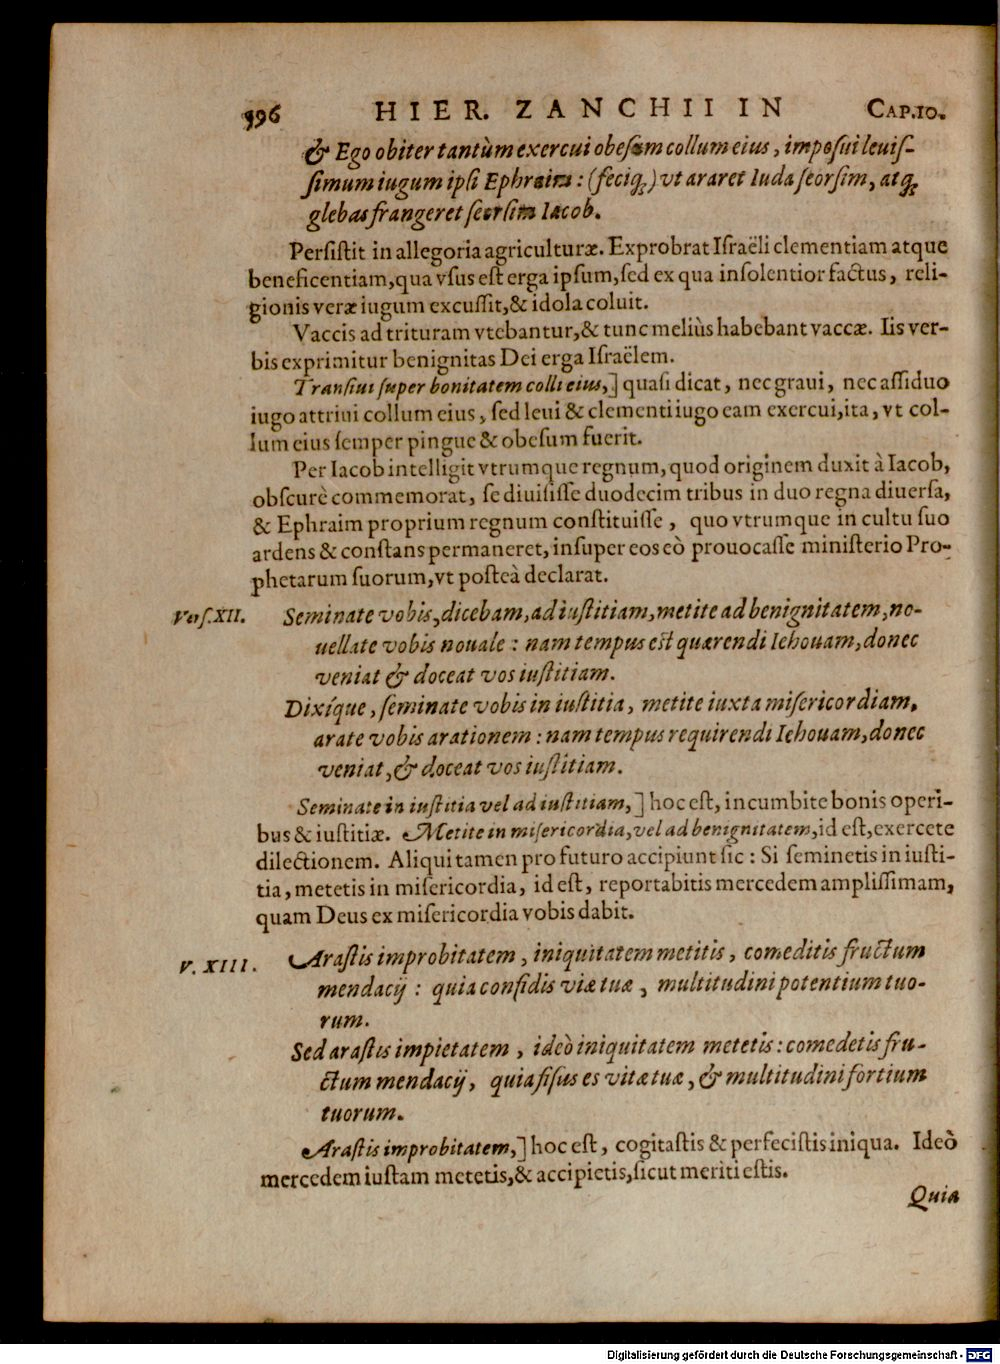 396 HIER. ZANCHII IN CAP.10.
& Ego obiter tantùm exercui obesum collum eius, imposui leuis-
simum iugum ipsi Ephraim: (feciq́;) vt araret Iuda seorsim, atq́;
glebas frangeret seorsim Iacob.
Persistit in allegoria agriculturæ. Exprobrat Israëli clementiam atque
beneficentiam, qua vsus est erga ipsum, sed ex qua insolentior factus, reli-
gionis veræ iugum excussit, & idola coluit.
Vaccis ad trituram vtebantur, & tunc meliùs habebant vaccæ. Iis ver-
bis exprimitur benignitas Dei erga Israëlem.
Transiui super bonitatem colli eius,] quasi dicat, nec graui, nec assiduo
iugo attriui collum eius, sed leui & clementi iugo eam exercui, ita, vt col-
lum eius semper pingue & obesum fuerit.
Per Iacob intelligit vtrumque regnum, quod originem duxit à Iacob,
obscurè commemorat, se diuisisse duodecim tribus in duo regna diuersa,
& Ephraim proprium regnum constituisse, quo vtrumque in cultu suo
ardens & constans permaneret, insuper eos eò prouocasse ministerio Pro-
phetarum suorum, vt posteà declarat.
Vers. XII. Seminate vobis, dicebam, ad iustitiam, metite ad benignitatem, no-
uellate vobis nouale: nam tempus est quærendi Iehouam, donec
veniat & doceat vos iustitiam.
Dixíque, seminate vobis in iustitia, metite iuxta misericordiam,
arate vobis arationem: nam tempus requirendi Iehouam, donec
veniat, & doceat vos iustitiam.
Seminate in iustitia vel ad iustitiam,] hoc est, incumbite bonis operi-
bus & iustitiæ. Metite in misericordia, vel ad benignitatem, id est, exercete
dilectionem. Aliqui tamen pro futuro accipiunt sic: Si seminetis in iusti-
tia, metetis in misericordia, id est, reportabitis mercedem amplissimam,
quam Deus ex misericordia vobis dabit.
V. XIII. Arastis improbitatem, iniquitatem metitis, comeditis fructum
mendacij: quia confidis viæ tuæ, multitudini potentium tuo-
rum.
Sed arastis impietatem, ideò iniquitatem metetis: comedetis fru-
ctum mendacij, quia fisus es vitæ tuæ, & multitudini fortium
tuorum.
Arastis improbitatem,] hoc est, cogitastis & perfecistis iniqua. Ideò
mercedem iustam metetis, & accipietis, sicut meriti estis.
Quia
Digitalisierung gefördert durch die Deutsche Forschungsgemeinschaft - DFG